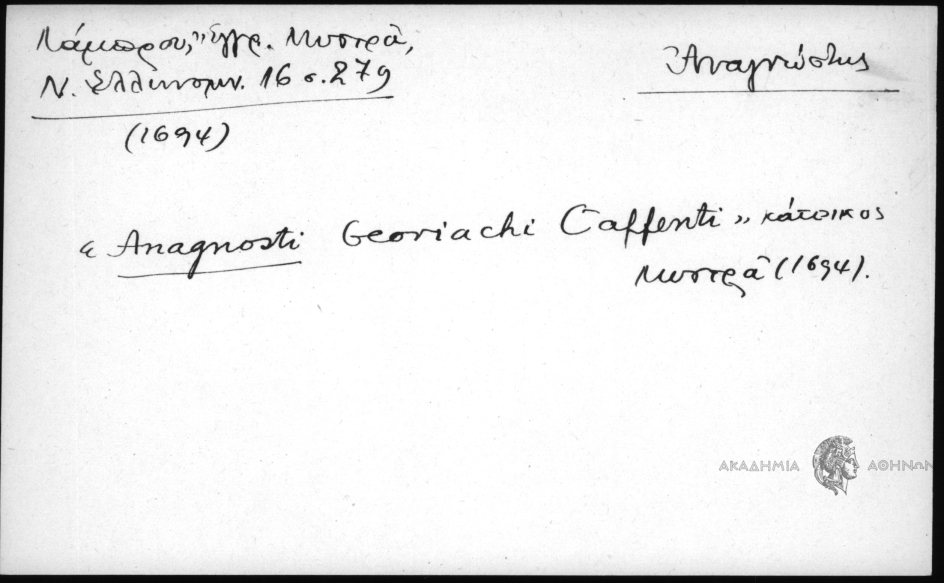 Λάμπρου, Ἔγγρ. Μυστρᾶ,
Ν. Ἑλληνομν. 16 σ. 279
(1694)
Ἀναγνώστης
« Anagnosti Georiachi Caffenti » κάτοικος
Μυστρᾶ (1694).
ΑΚΑΔΗΜΙΑ ΑΘΗΝΩΝ